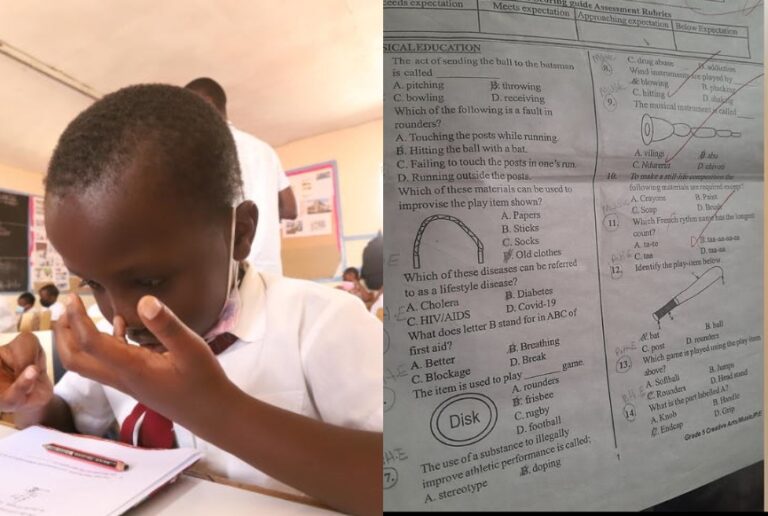 eeds expectation
Meets expectation
Approaching expectation
Below Expectation
oring guide Assessment Rubrics
SICAL EDUCATION
The act of sending the ball to the batsman
is called
A. pitching B. throwing
C. bowling D. receiving
Which of the following is a fault in
rounders?
A. Touching the posts while running.
B. Hitting the ball with a bat.
C. Failing to touch the posts in one's run.
D. Running outside the posts.
Which of these materials can be used to
improvise the play item shown?
A. Papers
B. Sticks
C. Socks
Old clothes
Which of these diseases can be referred
to as a lifestyle disease?
A. Cholera B. Diabetes
C. HIV/AIDS D. Covid-19
What does letter B stand for in ABC of
first aid?
A. Better B. Breathing
C. Blockage D. Break
The item is used to play game.
A. rounders
B. frisbee
C. rugby
D. football
Disk
The use of a substance to illegally
improve athletic performance is called;
A. stereotype B. doping
7.
C. drug abuse D. addiction
8. Wind instruments are played by
blowing B. plucking
C. hitting D. shaking
9. The musical instrument is called
A. vilingi abu
C. Ndurerut D. chivoti
10. To make a still life composition the
following materials are required except?
A. Crayons B. Paint
C. Soap D. Brush
11. Which French rythm name has the longest
count?
A. ta-te B. taa-aa-aa-aa
C. taa D. taa-aa
12. Identify the play-item below.
bat B. ball
C. post D. rounders
13. Which game is played using the play item
above?
A. Softball B. Jumps
C. Rounders D. Head stand
14. What is the part labelled A?
A. Knob B. Handle
C. Endcap D. Grip
1
Grade 5 Creative Arts/Music/P.E